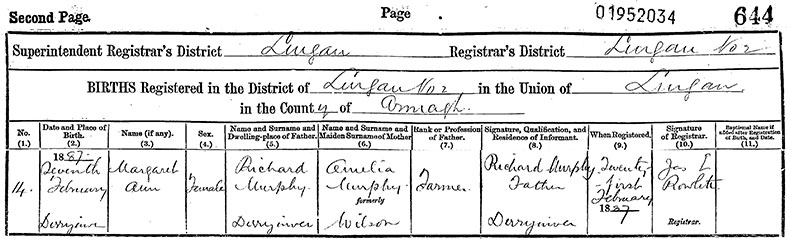 Second Page. Page 01952034 644
Superintendent Registrar's District Lurgan Registrar's District Lurgan No 2
BIRTHS Registered in the District of Lurgan No 2 in the Union of Lurgan
in the County of Armagh.
No. (1.) Date and Place of Birth. (2.) Name (if any). (3.) Sex. (4.) Name and Surname and Dwelling-place of Father. (5.) Name and Surname and Maiden Surname of Mother (6.) Rank or Profession of Father. (7.) Signature, Qualification, and Residence of Informant. (8.) When Registered. (9.) Signature of Registrar. (10.) Baptismal Name if added after Registration of Birth, and Date. (11.)
14. 1887 Seventh February Derryinver
Margaret Ann
Female
Richard Murphy Derryinver
Amelia Murphy formerly Wilson
Farmer
Richard Murphy Father Derryinver
Twenty-first February 1887
Jas Rowlett Registrar.